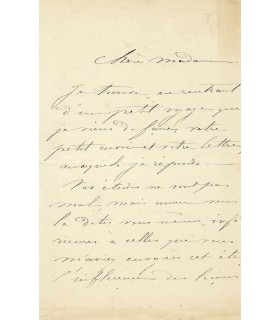 Chère Madame
Je trouve, en rentrant
d'un petit voyage que
je viens de faire votre
petit envoi et votre lettre,
auxquels je réponds.
Vos études ne sont pas
mal, mais comme vous
le dites vous même, infé
rieures à celles que vous
m'aviez envoyées cet été
l'influence des leçons